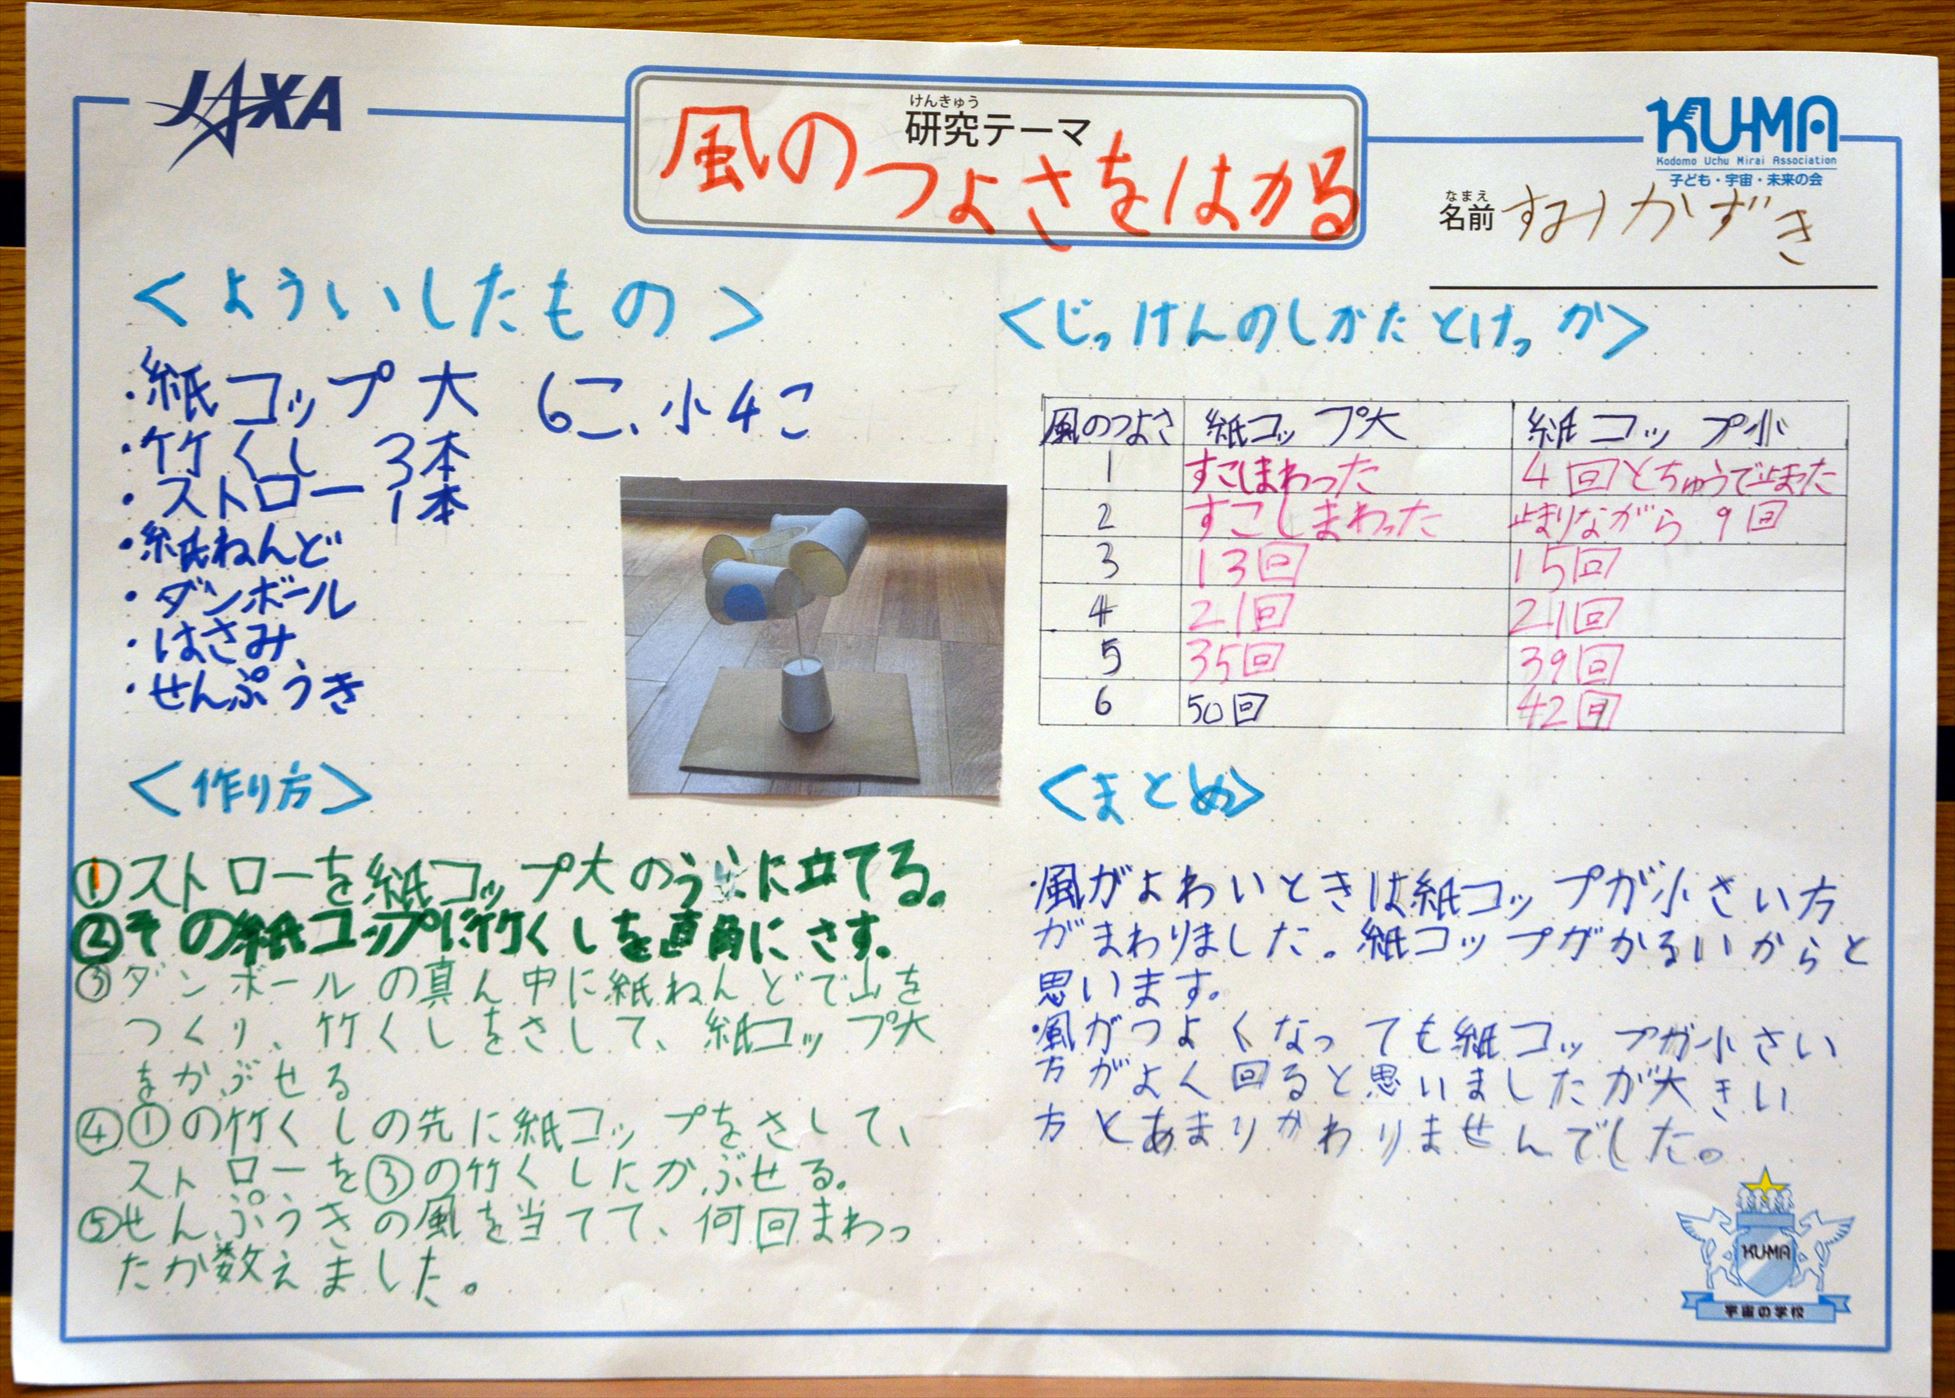 JAXA
けんきゅう
研究テーマ
風のつよさをはかる
KU-MA
Kodomo Uchu Mirai Association
子ども・宇宙・未来の会
なまえ
名前 すみかずき
＜よういしたもの＞
・紙コップ大 6こ、小4こ
・竹くし 3本
・ストロー 1本
・紙ねんど
・ダンボール
・はさみ
・せんぷうき
＜作り方＞
①ストローを紙コップ大のうらに立てる。
②その紙コップに竹くしを直角にさす。
③ダンボールの真ん中に紙ねんどで山を
つくり、竹くしをさして、紙コップ大
をかぶせる
④①の竹くしの先に紙コップをさして、
ストローを③の竹くしたかぶせる。
⑤せんぷうきの風を当てて、何回まわっ
たか数えました。
＜じっけんのしかたとけっか＞
風のつよさ 紙コップ大 紙コップ小
1 すこしまわった 4回とちゅうで止また
2 すこしまわった 止まりながら 9回
3 13回 15回
4 21回 21回
5 35回 39回
6 50回 42回
＜まとめ＞
・風がよわいときは紙コップが小さい方
がまわりました。紙コップがかるいからと
思います。
・風がつよくなっても紙コップが小さい
方がよく回ると思いましたが大きい
方とあまりかわりませんでした。
KU-MA
宇宙の学校